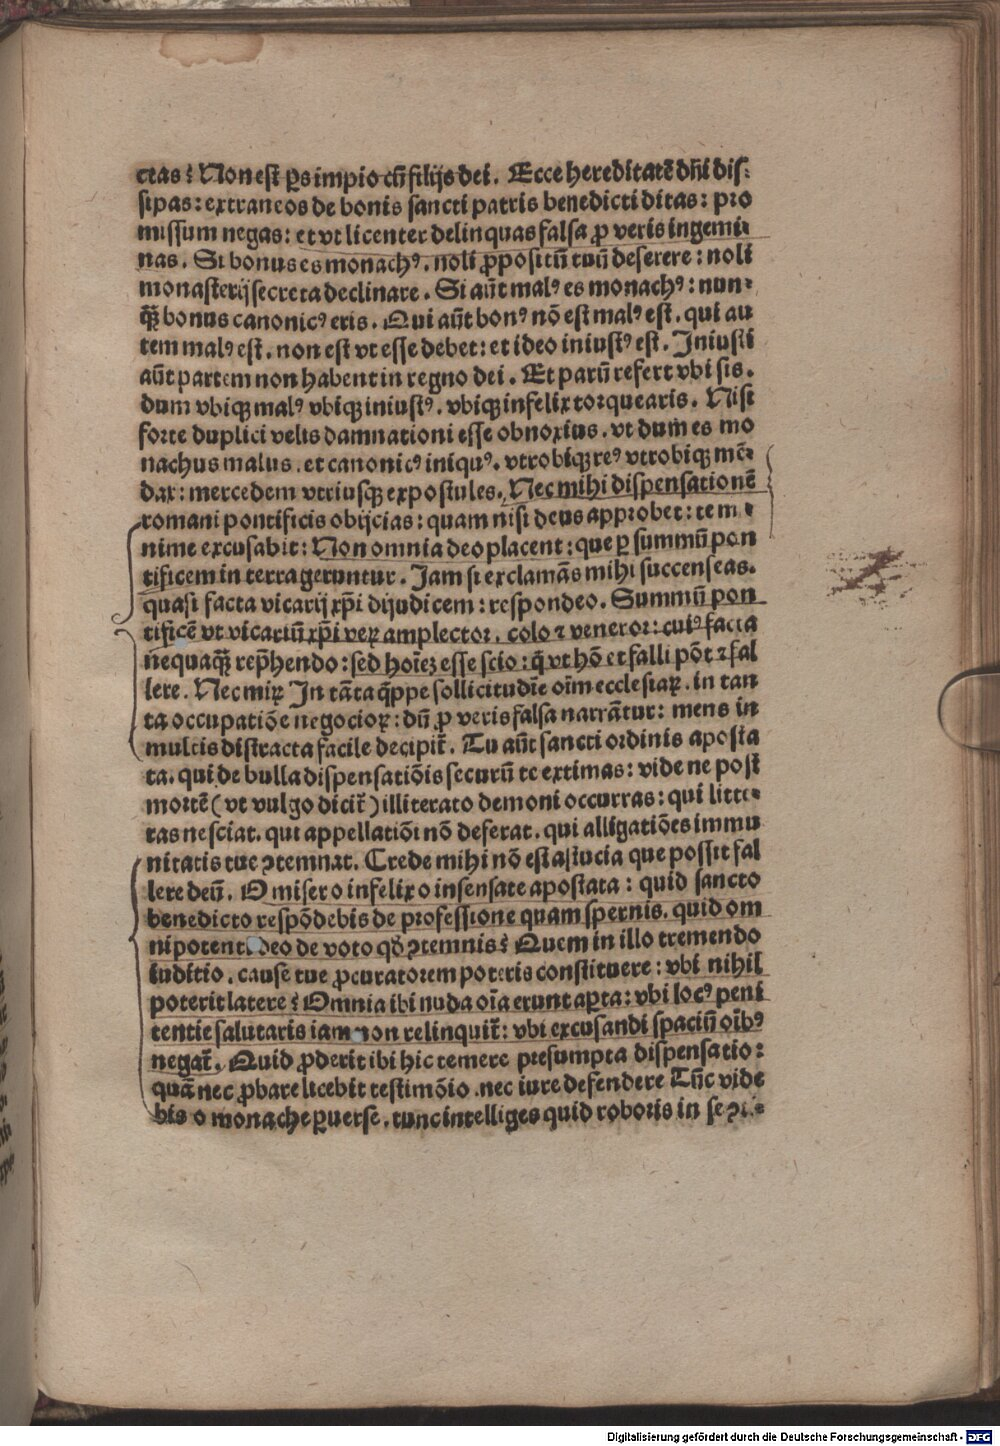 ctas? Non est ꝑs impio cū filijs dei. Ecce hereditatē dn̄i dis⸗
sipas: extraneos de bonis sancti patris benedicti ditas: pro
missum negas: et vt licenter delinquas falsa ꝓ veris ingemi⸗
nas. Si bonus es monachꝰ. noli ꝓpositū tuū deserere: noli
monasterij secreta declinare. Si aūt malꝰ es monachꝰ: nun⸗
q̄ȝ bonus canonicꝰ eris. Qui aūt bonꝰ nō est malꝰ est. qui au
tem malꝰ est. non est vt esse debet: et ideo iniustꝰ est. Iniusti
aūt partem non habent in regno dei. Et parū refert vbi sis.
dum vbiqȝ malꝰ vbiqȝ iniustꝰ. vbiqȝ infelix torquearis. Nisi
forte duplici velis damnationi esse obnoxius. vt dum es mo
nachus malus. et canonicꝰ iniquꝰ. vtrobiqȝ reꝰ vtrobiqȝ mē⸗
dax: mercedem vtriusqȝ expostules. Nec mihi dispensationē
romani pontificis obijcias: quam nisi deus approbet: te m⸗
nime excusabit: Non omnia deo placent: que ꝑ summū pon
tificem in terra geruntur. Iam si exclamās mihi succenseas.
quasi facta vicarij xp̄i dijudicem: respondeo. Summū pon
tificē vt vicariū xp̄i veꝝ amplector. colo ⁊ veneror: cuiꝰ facta
nequaq̄ȝ rep̄hendo: sed hoīeȝ esse scio: q̄ vt hō et falli pōt ⁊ fal
lere. Nec miꝝ In tāta q̄ppe sollicitudīe oīm ecclesiaꝝ. in tan
ta occupatiōe negocioꝝ: dū ꝓ veris falsa narrātur: mens in
multis distracta facile decipit̄. Tu aūt sancti ordinis aposta
ta. qui de bulla dispensatiōis securū te extimas: vide ne post
mortē (vt vulgo dicit̄) illiterato demoni occurras: qui litte⸗
ras nesciat. qui appellatiōi nō deferat. qui alligatiōes immu
nitatis tue ꝯtemnat. Crede mihi nō est astucia que possit fal
lere deū. O miser o infelix o insensate apostata: quid sancto
benedicto respōdebis de professione quam spernis. quid om
nipotent. deo de voto qd̄ ꝯtemnis? Quem in illo tremendo
iuditio. cause tue ꝓcuratorem poteris constituere: vbi nihil
poterit latere? Omnia ibi nuda oīa erunt aꝑta: vbi locꝰ peni
tentie salutaris iam non relinquit̄: vbi excusandi spaciū oībꝰ
negat̄. Quid ꝓderit ibi hic temere presumpta dispensatio:
quā nec ꝓbare licebit testimōio. nec iure defendere Tūc vide
bis o monache ꝑuerse. tunc intelliges quid roboris in se
Digitalisierung gefördert durch die Deutsche Forschungsgemeinschaft - DFG